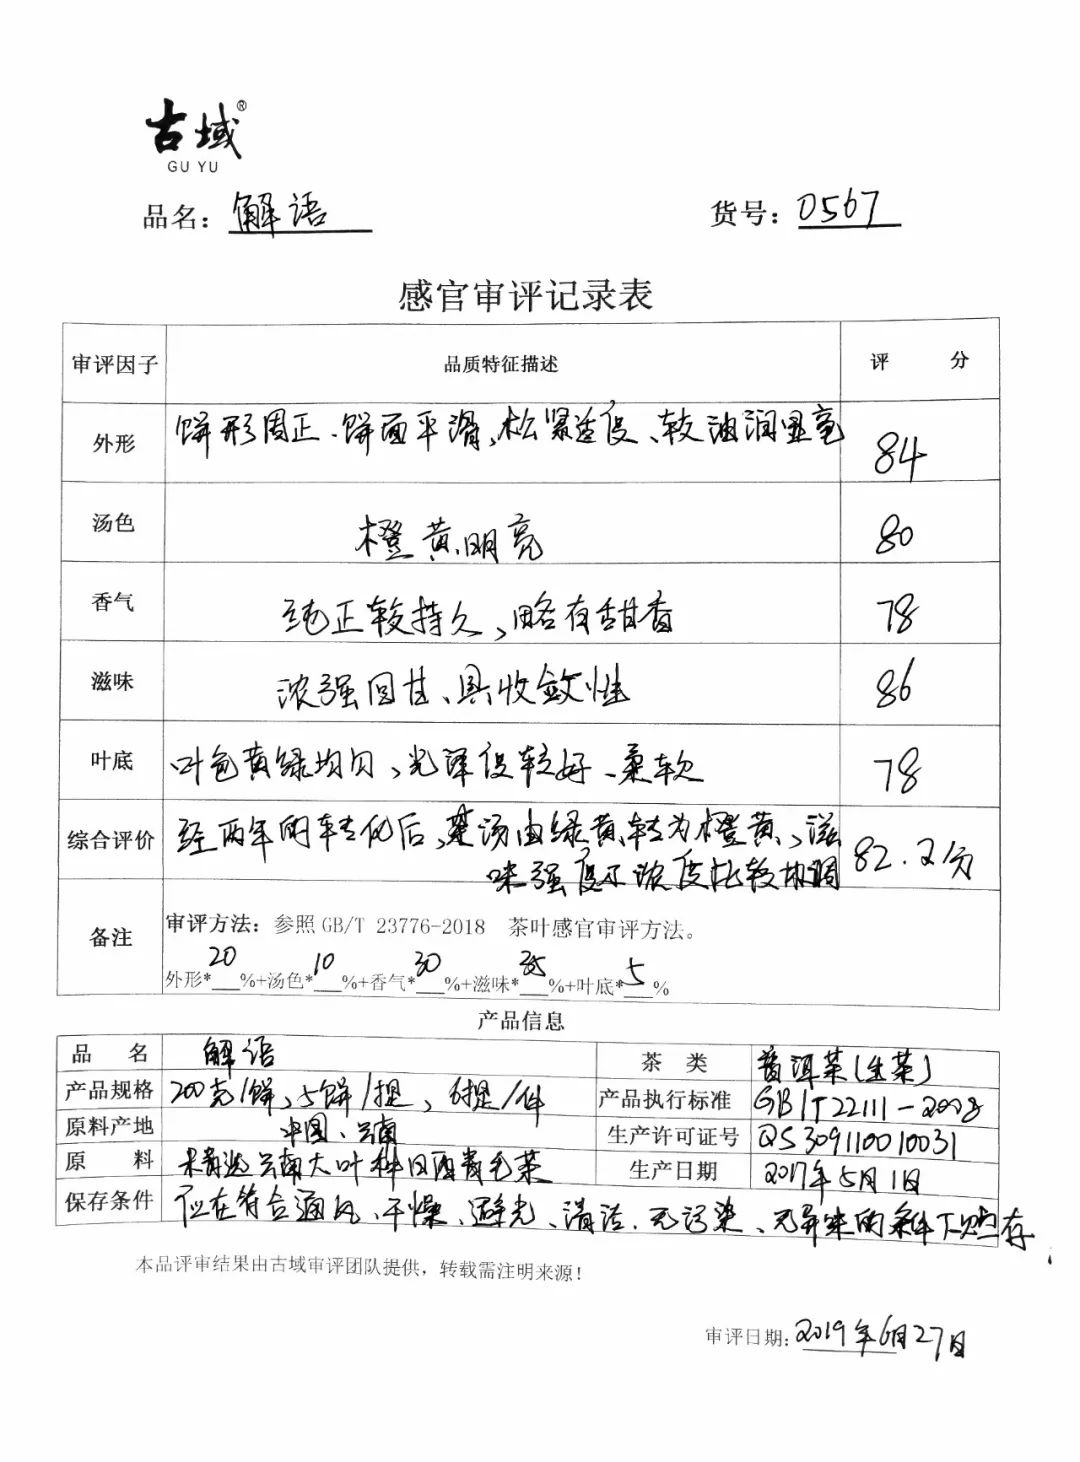 古域®
GU YU
品名：解语 货号：0567
感官审评记录表
审评因子 品质特征描述 评 分
外形 饼形周正、饼面平滑、松紧适度、较油润显毫 84
汤色 橙黄明亮 80
香气 纯正较持久、略有甜香 78
滋味 浓强回甘、具收敛性 86
叶底 叶色黄绿均匀、光泽度较好、柔软 78
综合评价 经两年的转化后，茶汤由绿黄转为橙黄、滋
味强度与浓度比较协调 82.2分
备注 审评方法：参照 GB/T 23776-2018 茶叶感官审评方法。
外形*20%+汤色*10%+香气*30%+滋味*35%+叶底*5%
产品信息
品 名 解语 茶 类 普洱茶(生茶)
产品规格 200克/饼、5饼/提、6提/件 产品执行标准 GB/T22111-2008
原料产地 中国、云南 生产许可证号 QS309110010031
原 料 精选云南大叶种日晒青毛茶 生产日期 2017年5月1日
保存条件 应在符合通风、干燥、避光、清洁、无污染、无异味的条件下贮存
本品评审结果由古域审评团队提供，转载需注明来源！
审评日期：2019年6月27日